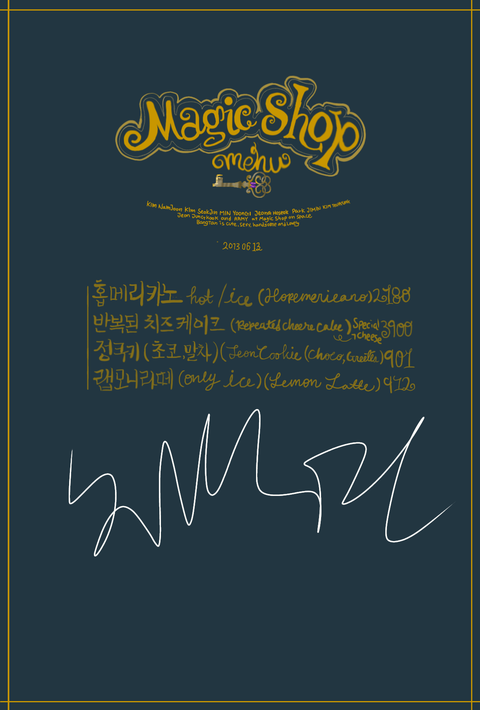 Magic Shop
menu
Kim Namjoon Kim Seokjin MIN Yoongi Jeong Hoseok Park Jimin Kim Taehyung
Jeon Jungkook and ARMY at Magic Shop on Space
BangTan is cute, sexy, handsome and lovely
2013 06 13
홉메리카노 hot / ice (Hopemericano) 2180
반복된 치즈케이크 (Repeated cheese cake) Special cheese 3900
정쿡키 (초코, 말차) (Jeon Cookie (Choco, Greentea) 901
랩모니라떼 (only ice) (Lemon Latte) 912